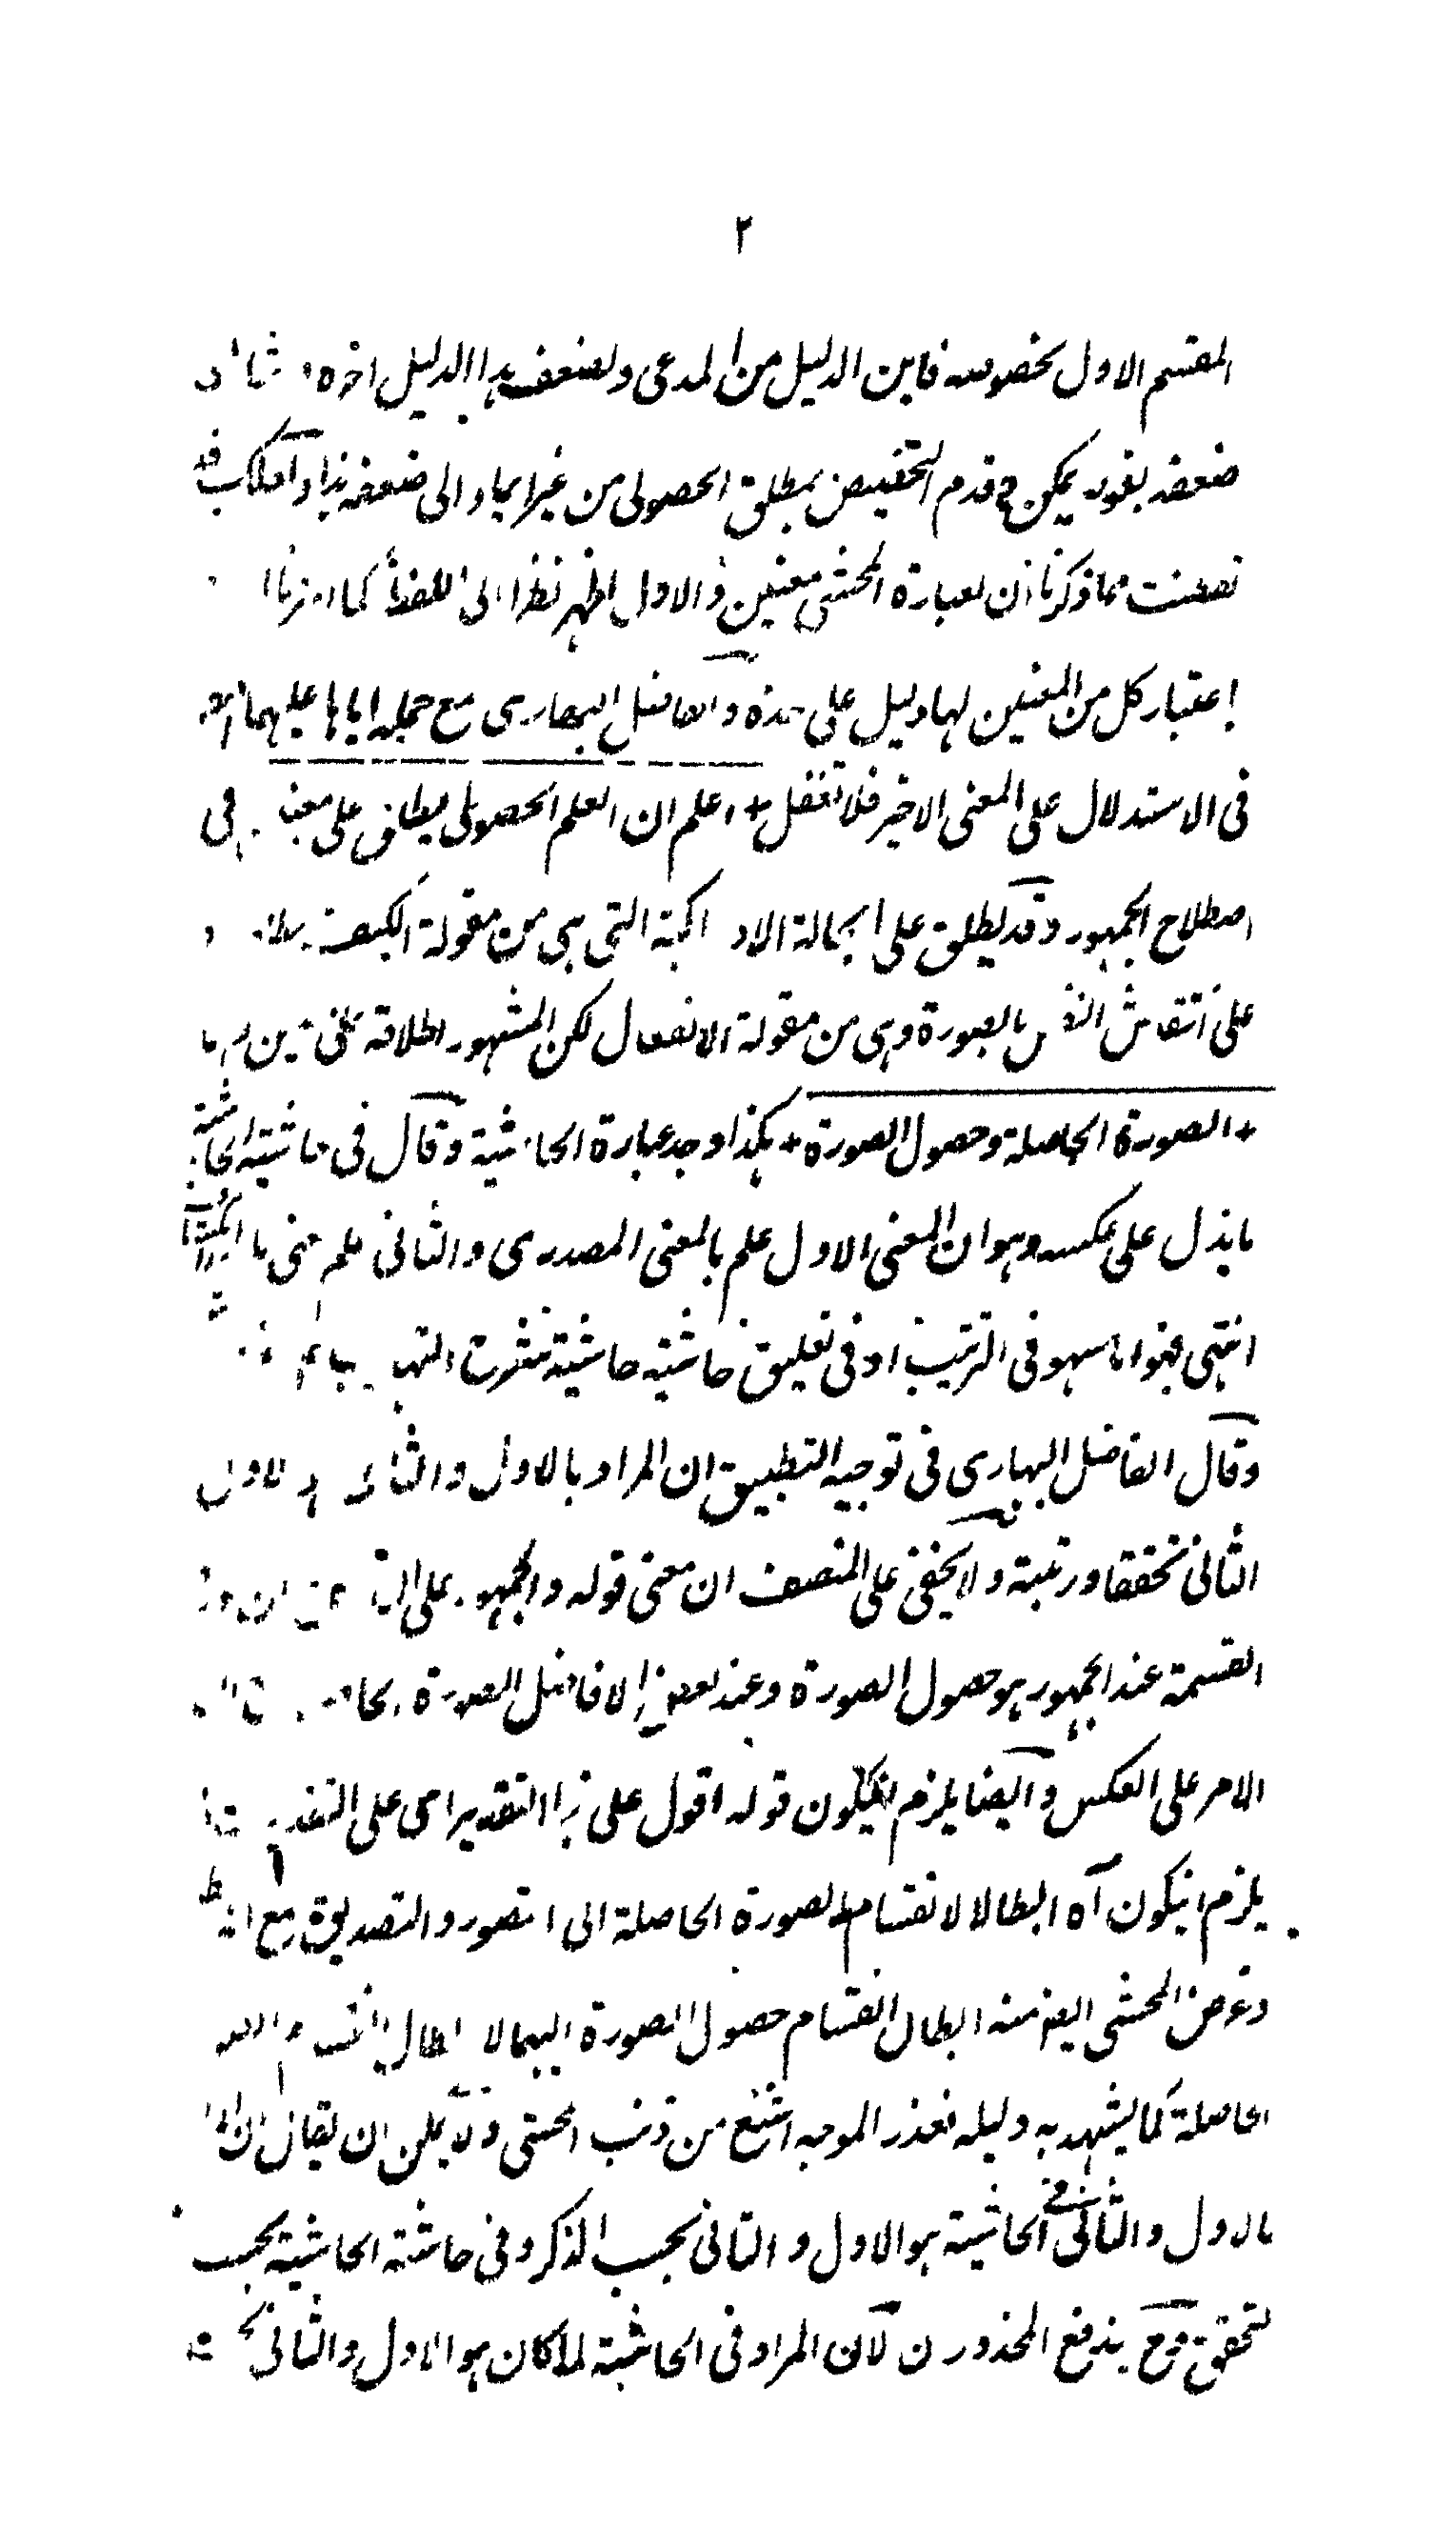 ٢
المقسم الاول بخصوصه فاين الدليل من المدعى ولضعف هذا الدليل اخره
ضعفه بقوله يمكن ح قدم التخصيص بمطلق الحصولى من غير ايماء الى ضعفه هذا واهلك قد
تفطنت مما ذكرنا ان لعبارة المحشى معنيين والاول اظهر نظرا الى اللفظ كما اشرنا
اعتبار كل من المعنيين لها دليل على حدة والفاضل البهارى مع حمله اياها عليهما
فى الاستدلال على المعنى الاخير فلا تغفل + اعلم ان العلم الحصولى يطلق على معنيين فى
اصطلاح الجمهور وقد يطلق على الحالة الادراكية التى هى من مقولة الكيف
على انتقاش النفس بالصورة وهى من مقولة الانفعال لكن المشهور اطلاقه على
+ الصورة الحاصلة وحصول الصورة + هكذا وجد عبارة الحاشية وقال فى حاشية الحاشية
ما يدل على عكسه وهو ان المعنى الاول علم بالمعنى المصدرى والثانى علم بمعنى ما به الانكشاف
انتهى فهو اما سهو فى الترتيب او فى تعليق حاشية حاشية شرح التهذيب
وقال الفاضل البهارى فى توجيه التطبيق ان المراد بالاول والثانى الاول
الثانى تحققا ورتبة ولا يخفى على المنصف ان معنى قوله والجمهور على
القسمة عند الجمهور هو حصول الصورة وعند بعض الافاضل الصورة الحاصلة
الامر على العكس وايضا يلزم ان يكون قوله اقول على هذا التقدير اى على التقدير
يلزم ان يكون آه ابطالا لانقسام الصورة الحاصلة الى التصور والتصديق مع انه
وغرض المحشى ايضا منه ابطال انقسام حصول الصورة اليهما لا ابطال انقسام الصورة
الحاصلة كما يشهد به دليله فعذر الموجه اشنع من ذنب المحشى ولا يمكن ان يقال ان المراد
بالاول والثانى فى الحاشية هو الاول والثانى بحسب الذكر وفى حاشية الحاشية بحسب
التحقق وح يندفع المحذوران لان المراد فى الحاشية لما كان هو الاول والثانى